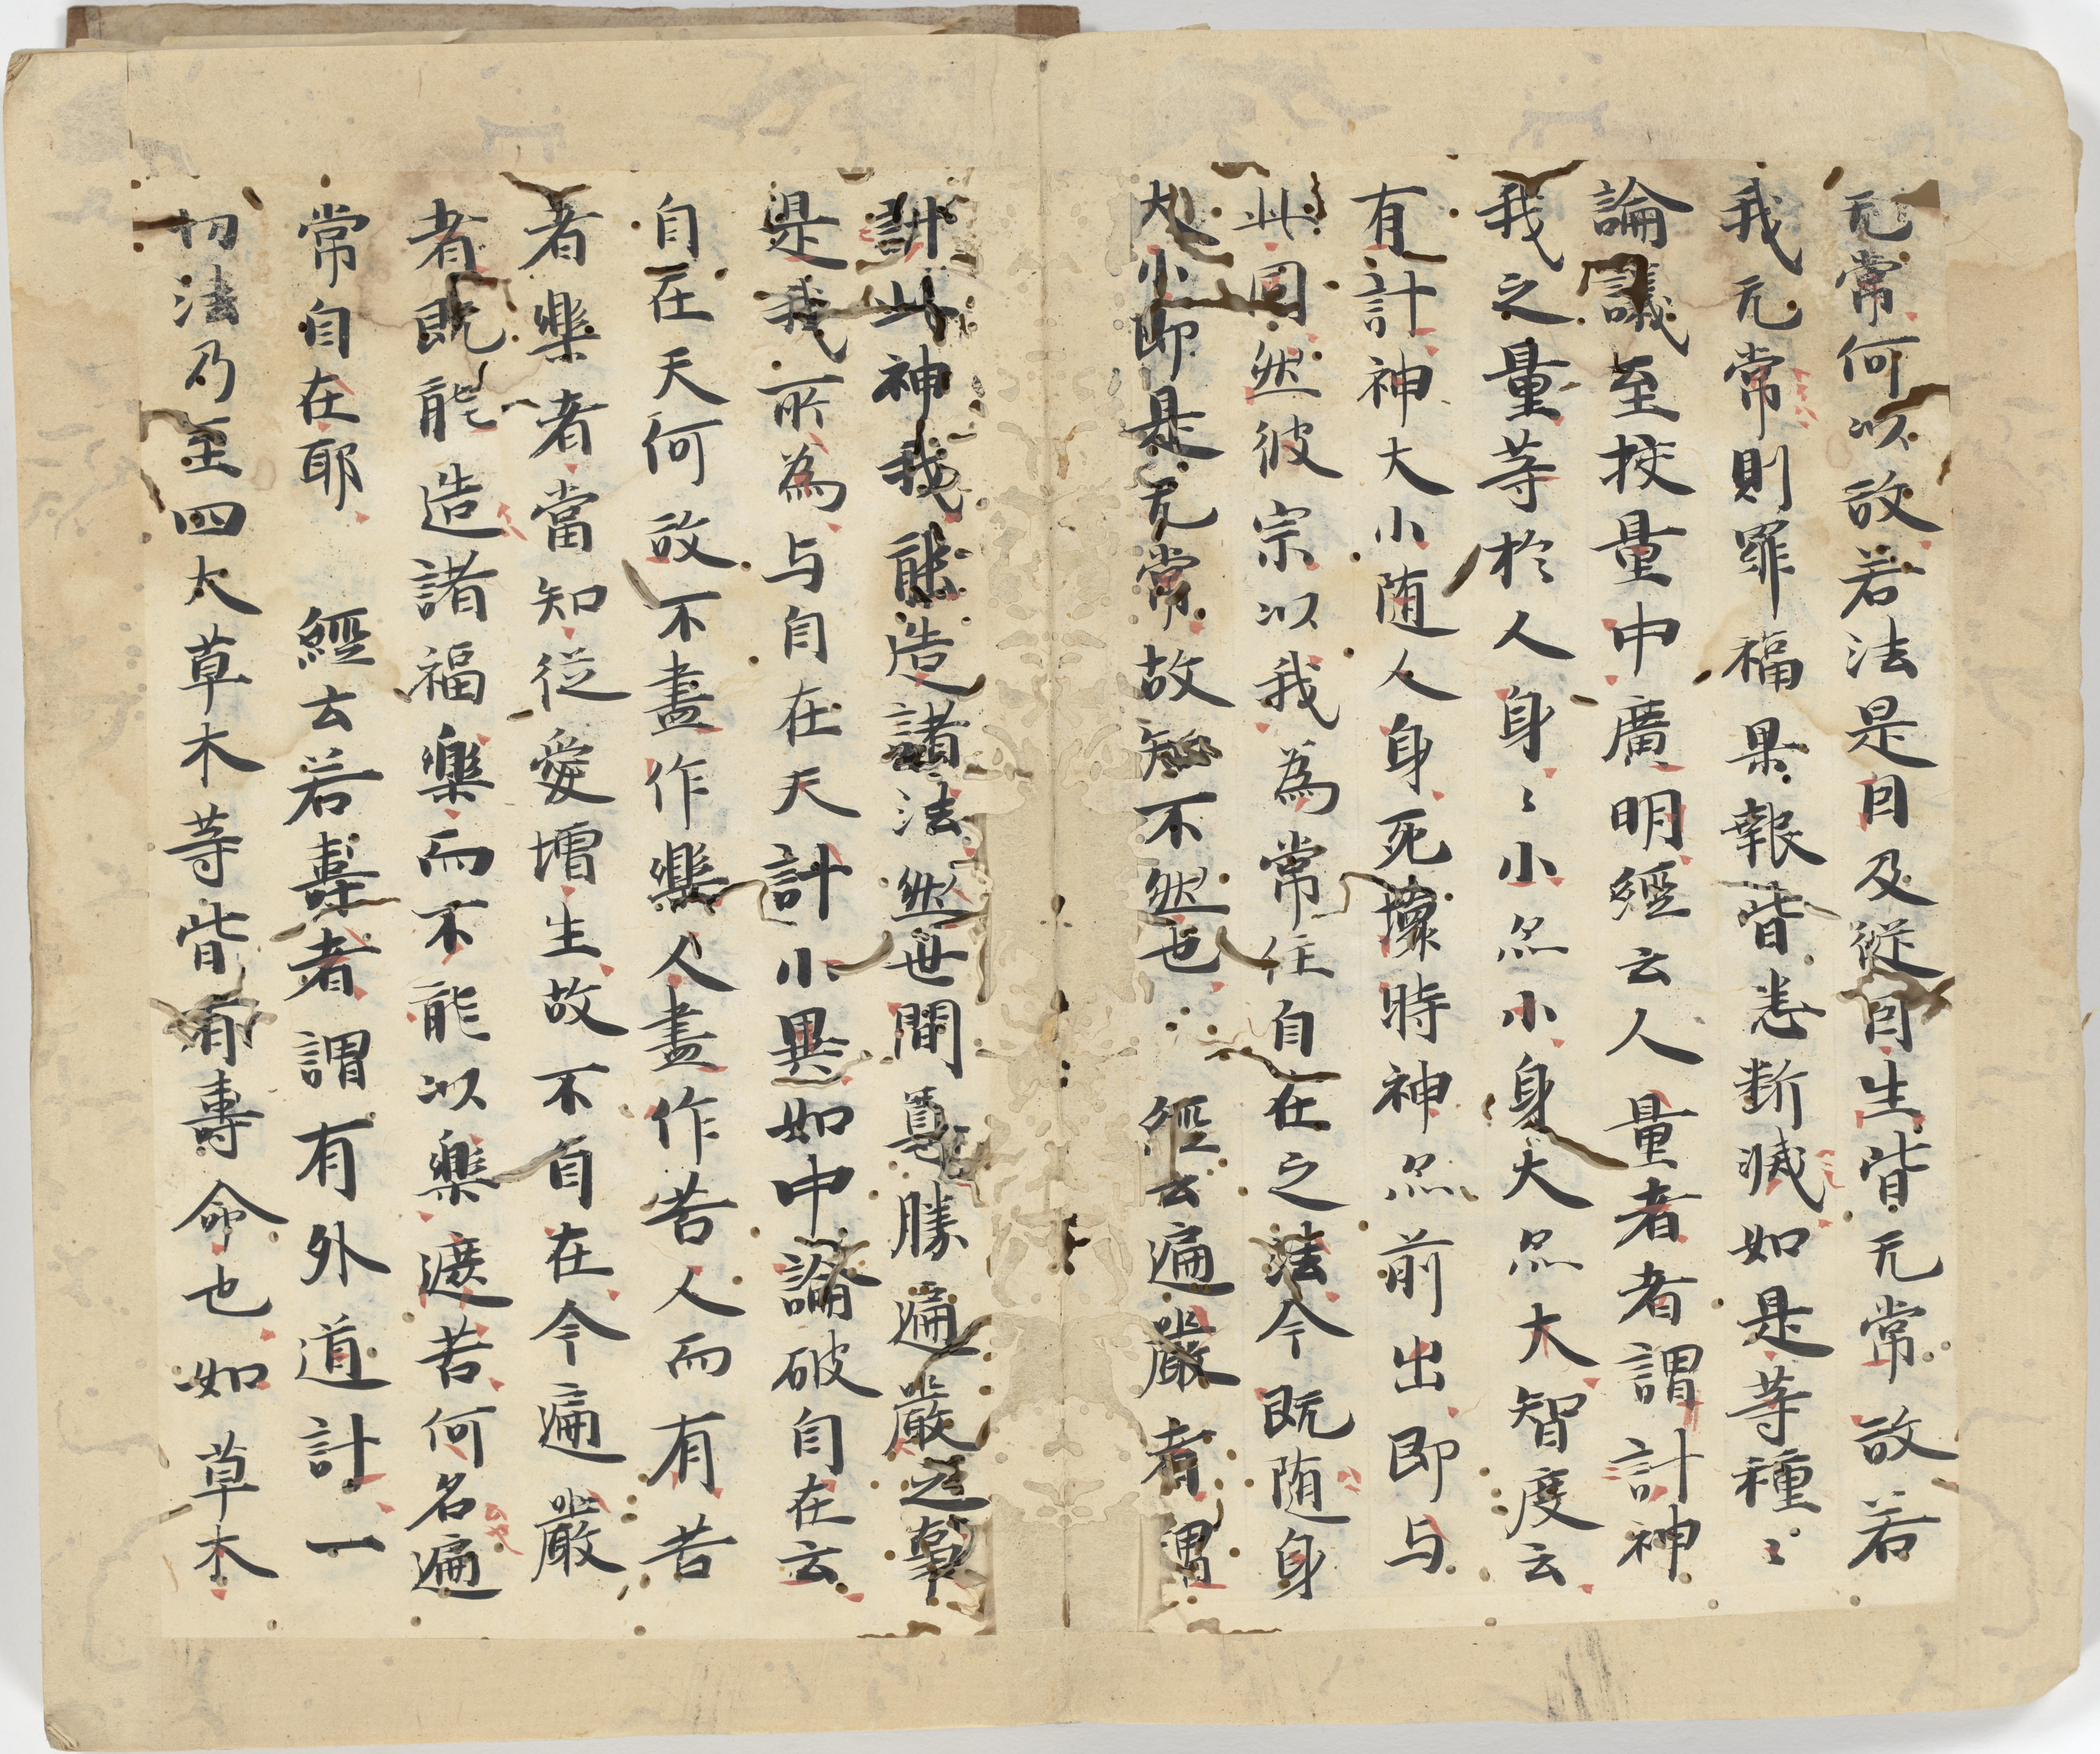 无常何以故若法是因及從因生皆无常故若
我无常則罪福果報皆悉断滅如是等種〻
論議至挍量中廣明經云人量者者謂計神
我之量等於人身〻小点小身大点大智度云
有計神大小随人身死壞時神点前出即与
此同然彼宗以我為常住自在之法今既随身
大小即是无常故知不然也　經云遍嚴者謂
計此神我能造諸法然世間尊勝遍嚴之事
是我所為与自在天計小異如中論破自在云
自在天何故不盡作樂人盡作苦人而有苦
者樂者當知從愛増生故不自在今遍嚴
者既能造諸福樂而不能以樂遮苦何名遍
常自在耶　經云若壽者謂有外道計一
切法乃至四大草木等皆有壽命也如草木